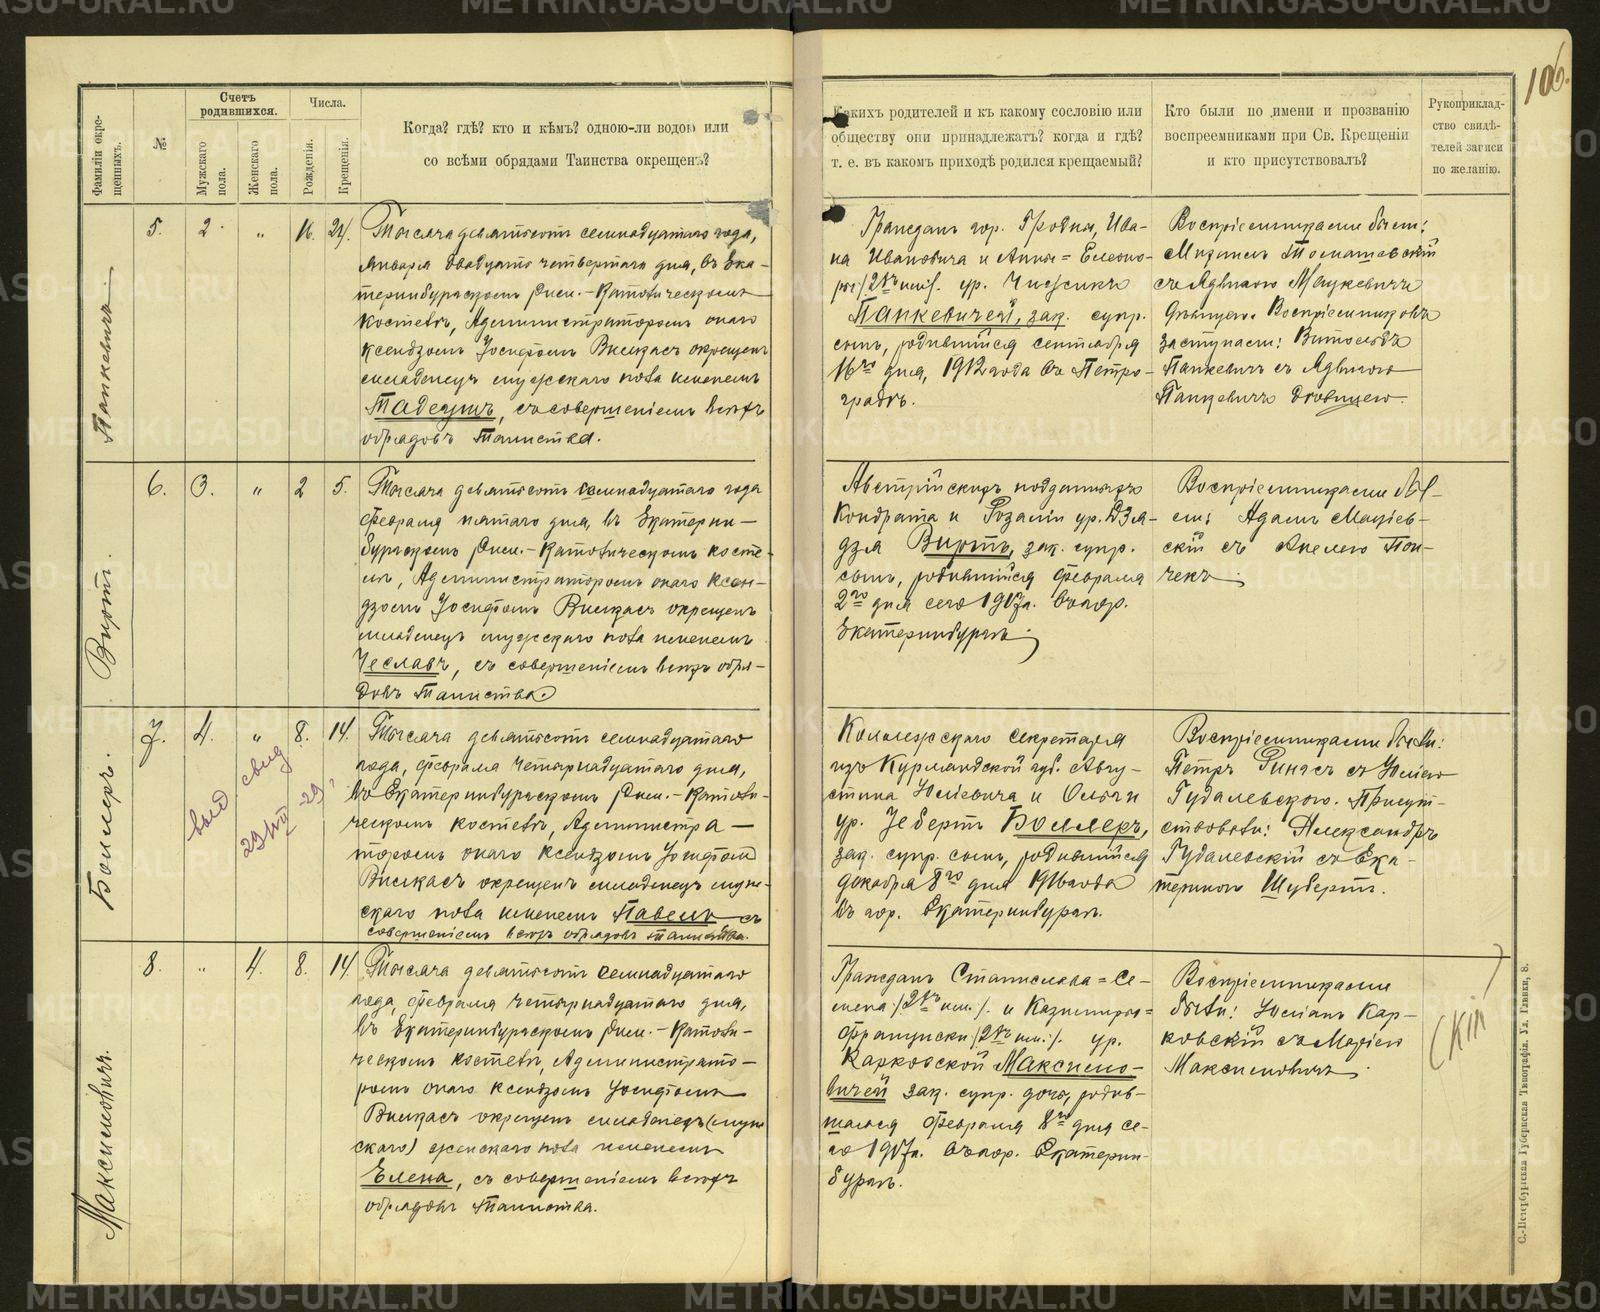 106.
Фамиліи окре-
щенныхъ.
№
Счетъ
родившихся.
Мужскаго
пола.
Женскаго
пола.
Числа.
Рожденія.
Крещенія.
Когда? гдѣ? кто и кѣмъ? одною-ли водою или
со всѣми обрядами Таинства окрещенъ?
Какихъ родителей и къ какому сословію или
обществу они принадлежатъ? когда и гдѣ?
т. е. въ какомъ приходѣ родился крещаемый?
Кто были по имени и прозванію
воспреемниками при Св. Крещеніи
и кто присутствовалъ?
Рукоприклад-
ство свидѣ-
телей записи
по желанію.
Панкевичъ.
5. 2. " 16. 24.
Тысяча девятьсотъ семнадцатаго года,
Января двадцать четвертаго дня, въ Ека-
теринбургскомъ Рим.-Католическомъ
Костелѣ, Администраторомъ онаго
Ксендзомъ Іосифомъ Вилкасъ окрещенъ
младенецъ мужскаго пола именемъ
Тадеушъ, съ совершеніемъ всѣхъ
обрядовъ Таинства.
Гражданъ гор. Гродна, Ива-
на Ивановича и Анны=Елеоно-
ры /2хъ им/. ур.
Панкевичей, зак. супр.
сынъ, родившійся сентября
16го дня, 1912 года въ Петро-
градѣ.
Воспріемниками были:
съ Ядвигою Мацкевичъ
дѣвицею. Воспріемниковъ
заступали: Витольдъ
Панкевичъ съ Ядвигою
Панкевичъ дѣвицею.
Виртъ.
6. 3. " 2 5.
Тысяча девятьсотъ семнадцатаго года
Февраля пятаго дня, въ Екатерин-
бургскомъ Рим.-Католическомъ Косте-
лѣ, Администраторомъ онаго Ксен-
дзомъ Іосифомъ Вилкасъ окрещенъ
младенецъ мужскаго пола именемъ
Чеславъ, съ совершеніемъ всѣхъ обря-
довъ Таинства.
Австрійскихъ подданныхъ
Кондрата и Розаліи ур. Дзя-
дзя Виртъ, зак. супр.
сынъ, родившійся Февраля
2го дня сего 1917 г. въ гор.
Екатеринбургѣ.
Воспріемниками бы-
ли: Адамъ Маціев-
скій съ Анелею Пон-
чекъ.
Боллеръ.
7. 4. " 8. 14.
выд. свид
23/VII -29
Тысяча девятьсотъ семнадцатаго
года, февраля четырнадцатаго дня,
въ Екатеринбургскомъ Рим.-Католи-
ческомъ Костелѣ, Администра-
торомъ онаго Ксендзомъ Іосифомъ
Вилкасъ окрещенъ младенецъ муж-
скаго пола именемъ Павелъ съ
совершеніемъ всѣхъ обрядовъ таинства.
Коллежскаго секретаря
изъ Курляндской губ. Авгу-
стина Юліевича и Ольги
ур. Зебертъ Боллеръ,
зак. супр. сынъ, родившійся
декабря 8го дня 1916 года
въ гор. Екатеринбургѣ.
Воспріемниками были:
Петръ съ Юліею
Гудалевскою. Присут-
ствовали: Александръ
Гудалевскій съ Ека-
териною Шубертъ.
Максимовичъ.
8. " 4. 8. 14.
Тысяча девятьсотъ семнадцатаго
года, февраля четырнадцатаго дня,
въ Екатеринбургскомъ Рим.-Католи-
ческомъ Костелѣ, Администрато-
ромъ онаго Ксендзомъ Іосифомъ
Вилкасъ окрещенъ младенецъ (муж-
скаго) женскаго пола именемъ
Елена, съ совершеніемъ всѣхъ
обрядовъ Таинства.
Гражданъ Станислава=Се-
мена /2хъ им./. и Казимиры=
Францишки /2хъ им./. ур.
Карковской Максимо-
вичей зак. супр. дочь, родив-
шаяся Февраля 8го дня се-
го 1917 г. въ гор. Екатерин-
бургѣ.
Воспріемниками
были: Юліанъ Кар-
ковскій съ Маріею
Максимовичъ.
С.-Петербургская Губернская Типографія. Ул. Глинки, 8.
METRIKI.GASO-URAL.RU